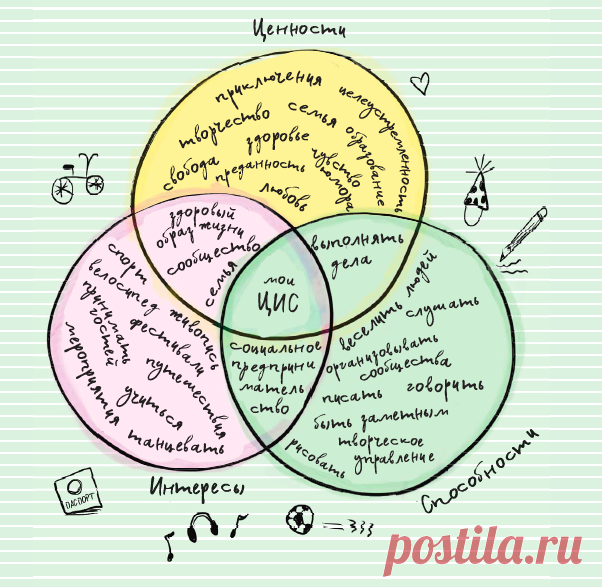 Ценности
приключения
целеустремленность
творчество
семья
образование
здоровье
чувство
юмора
свобода
преданность
любовь
здоровый
образ жизни
сообщество
семья
выполнять
дела
мои
ЦИС
спорт
велосипед
живопись
принимать
гостей
фестивали
мероприятия
путешествия
учиться
танцевать
социальное
предприни
матель
ство
веселить людей
слушать
организовывать
сообщества
писать
говорить
быть заметным
творческое
управление
рисовать
Интересы
Способности
ПАСПОРТ
postila.ru